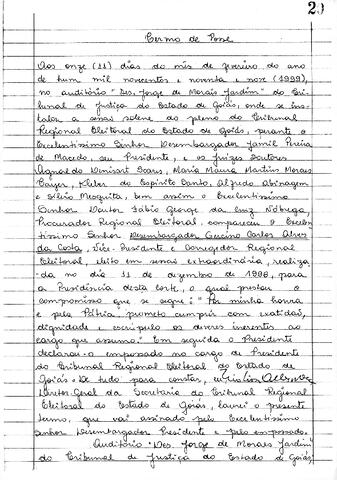 29
Termo de Posse
Aos onze (11) dias do mês de fevereiro do ano
de hum mil novecentos e noventa e nove (1999),
no auditório "Des. Jorge de Morais Jardim" do Tri-
bunal de Justiça do Estado de Goiás, onde se ins-
talou a sessão solene do pleno do Tribunal
Regional Eleitoral do Estado de Goiás, perante o
Excelentíssimo Senhor Desembargador Jamil Pereira
de Macedo, seu Presidente, e os Juízes Doutores
do Denisart Soares, Maria Maura Martins Moraes
Tayer, Kleber do Espírito Santo, Alfredo Abinagem
e Silvio Mesquita, bem assim o Excelentíssimo
Senhor Doutor Fábio George da Cruz Nóbrega,
Procurador Regional Eleitoral, compareceu o Excelen-
tíssimo Senhor Desembargador Gercino Carlos Alves
da Costa, Vice-Presidente e Corregedor Regional
Eleitoral, eleito em sessão extraordinária, realiza-
da no dia 11 de dezembro de 1998, para
a Presidência desta Corte, o qual prestou o
compromisso que se segue: "Por minha honra
e pela Pátria, prometo cumprir com exatidão,
dignidade e escrúpulo os deveres inerentes ao
cargo que assumo." Em seguida o Presidente
declarou-o empossado no cargo de Presidente
do Tribunal Regional Eleitoral do Estado de
Goiás. De tudo para constar, eu,
Diretor Geral da Secretaria do Tribunal Regional
Eleitoral do Estado de Goiás, lavrei o presente
termo, que vai assinado pelo Excelentíssimo
Senhor Desembargador Presidente e pelo empossado.
Auditório "Des. Jorge de Moraes Jardim"
do Tribunal de Justiça do Estado de Goiás,